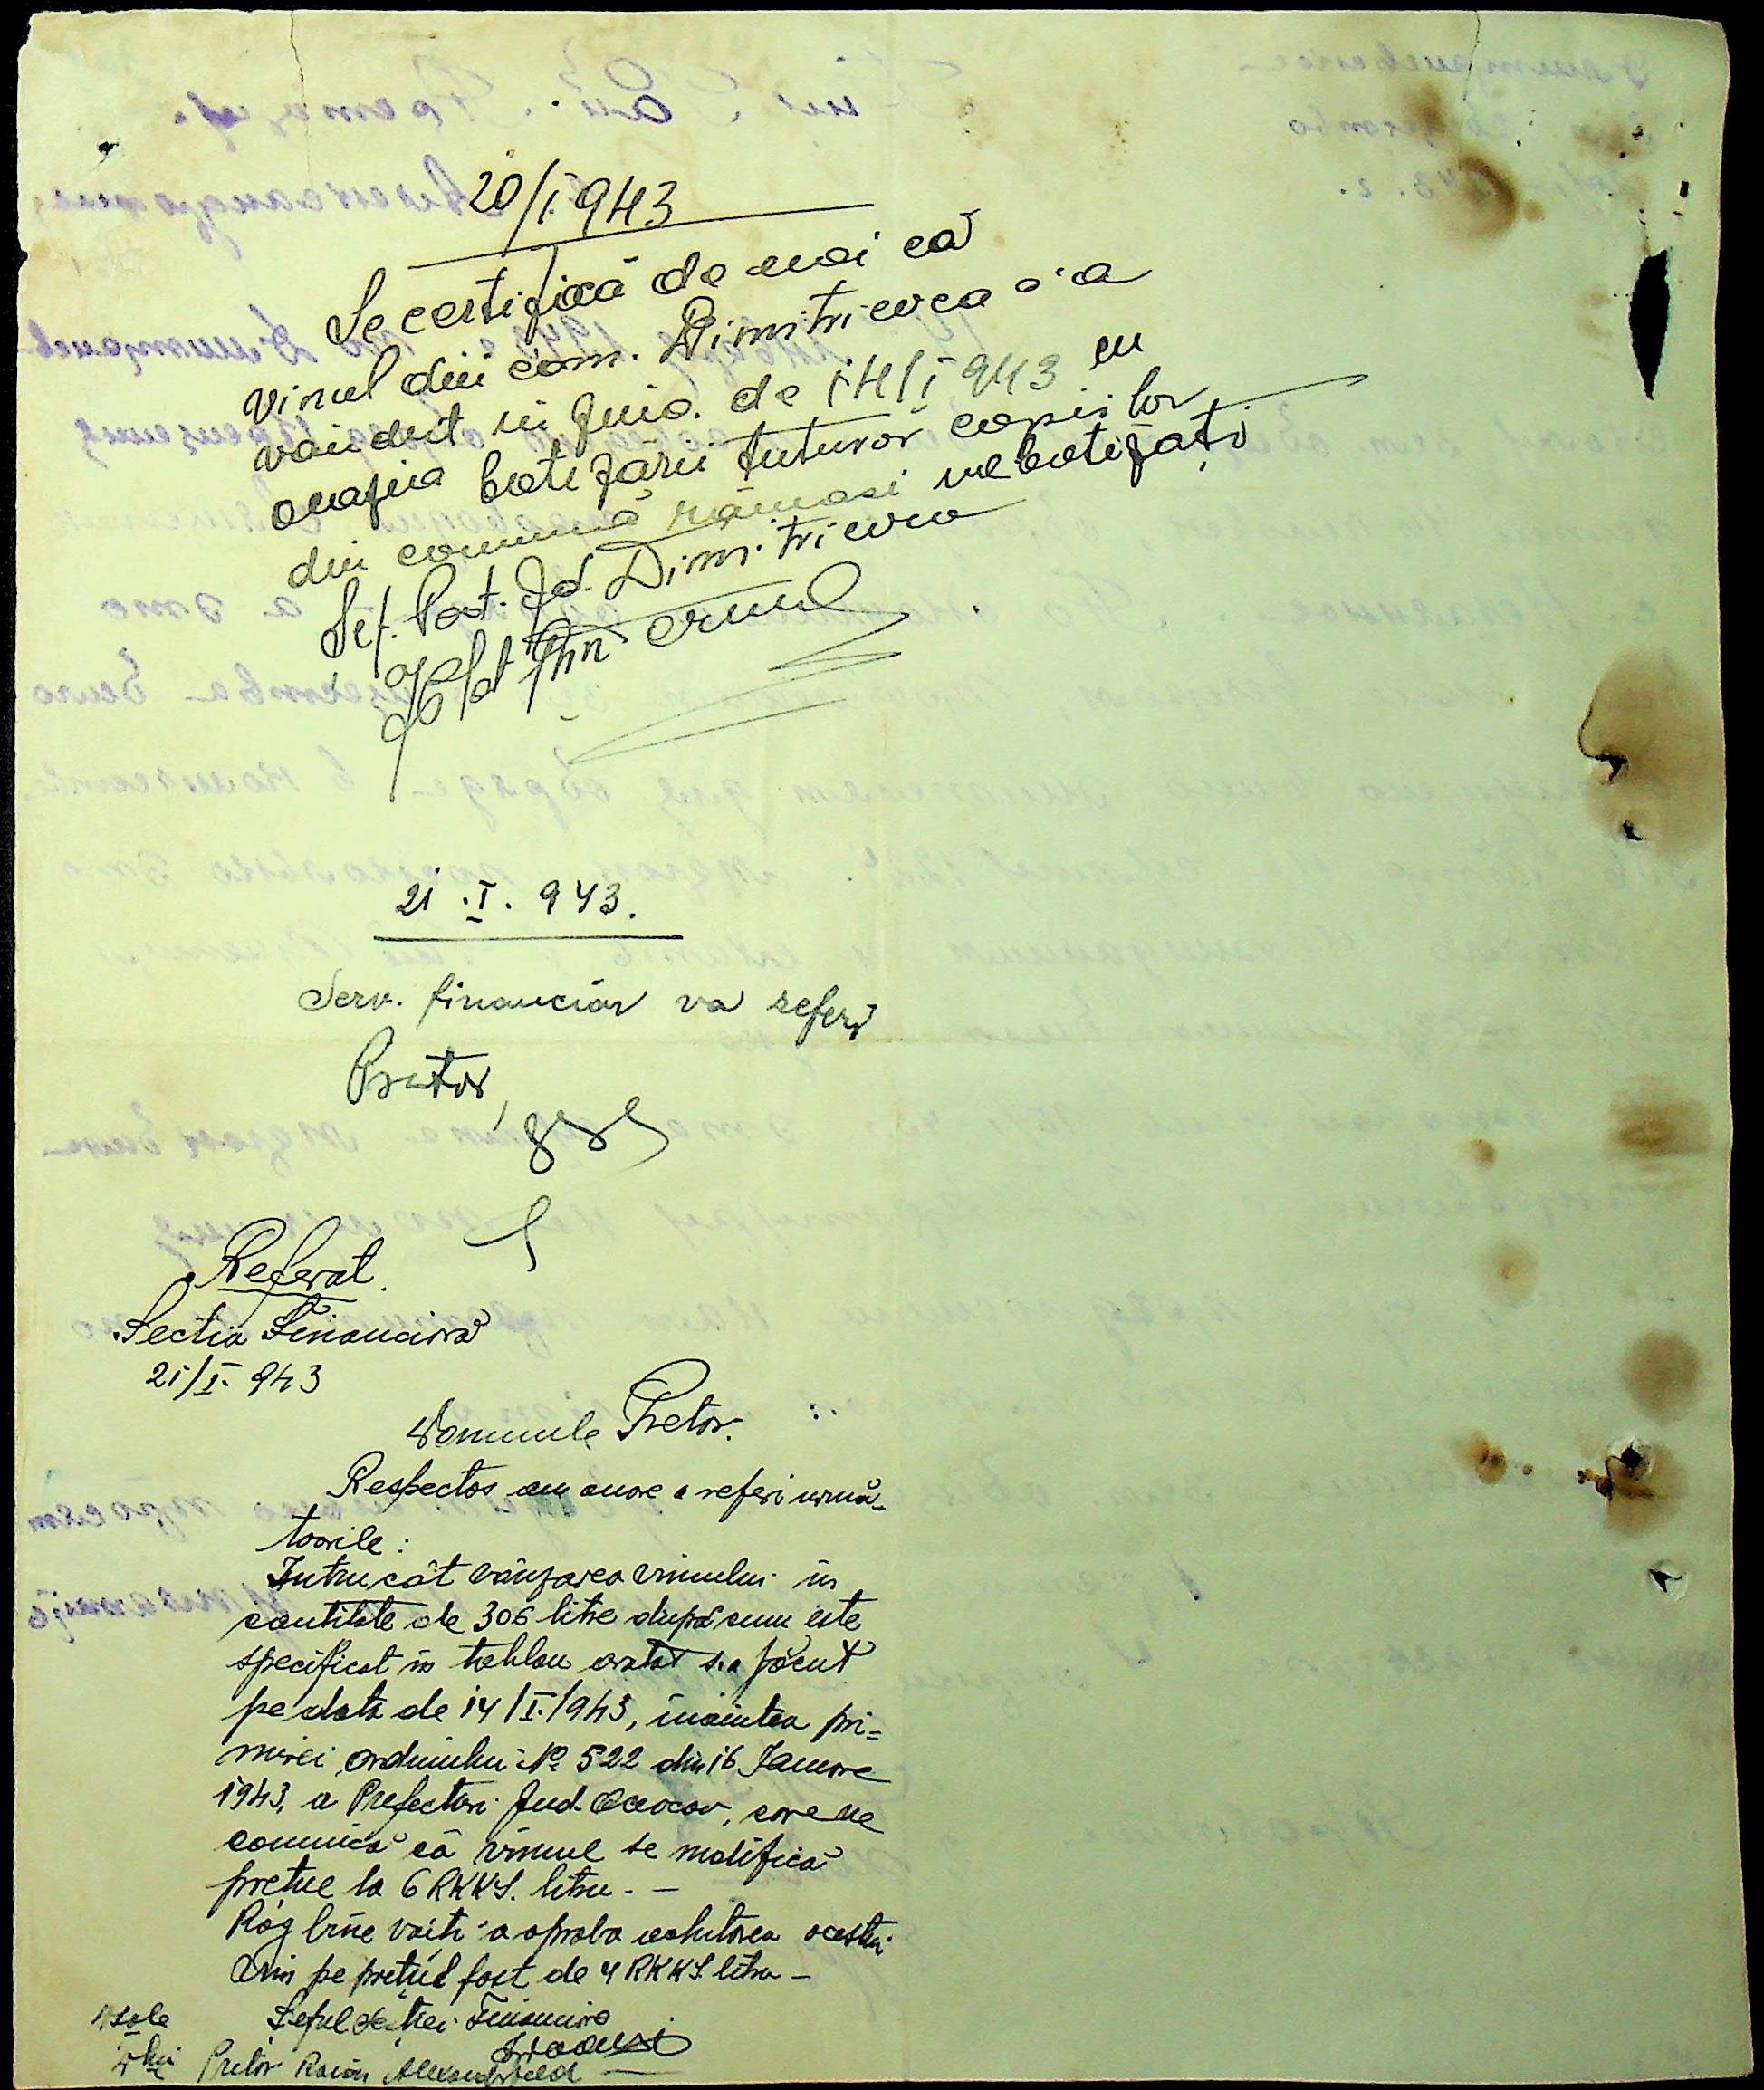 20/I 943
Se certifică de noi că
vinul din com. Dimitrievca s'a
vândut în ziua de 14/I 943 cu
ocazia botizării tuturor copiilor
din comună rămași nebotizați
Șef. Post. Jd. Dimitrievca
21.I.943.
Serv. financiar va referi
Pretor,
Referat.
Sectia Financiara
21/I.943
Domnule Pretor.
Respectos am onore a referi urmă-
toarile:
Intrucât vânzarea vinului în
cantitate de 306 litre după cum este
specificat in tablou aratat s.a făcut
pe data de 14/I./943, înaintea pri=
mirei ordinului No 522 din 16 Ianuare
1943, a Prefecturi Jud. Oceacov, care ne
comunică că vinul se modifică
prețue la 6 RKKS. litru. —
Rog bine voiti a aproba achitarea acestui
vin pe prețul fost de 4 RKKS litru —
Seful Secției Financiare
D-sale
D-lui Pretor Raion Alexanderfeld —